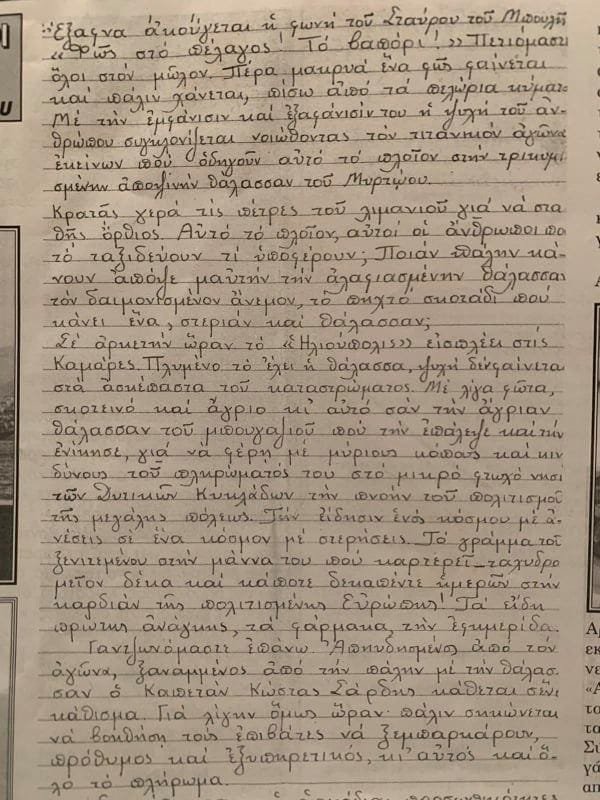 Ἔξαφνα ἀκούγεται ἡ φωνή τοῦ Σταύρου τοῦ Μπουλῆ
«Φῶς στό πέλαγος! Τό βαπόρι!» Πετιόμαστε
ὅλοι στόν μῶλον. Πέρα μακρυά ἕνα φῶς φαίνεται
καί πάλιν χάνεται, πίσω ἀπό τά πελώρια κύματα
Μέ τήν ἐμφάνισιν καί ἐξαφάνισίν του ἡ ψυχή τοῦ ἀν-
θρώπου συγκλονίζεται νοιώθοντας τόν τιτανικόν ἀγῶνα
ἐκείνων πού ὁδηγοῦν αὐτό τό πλοῖον στήν τρικυμι
σμένην ἀποψινήν θάλασσαν τοῦ Μυρτώου.
Κρατᾶς γερά τίς πέτρες τοῦ λιμανιοῦ γιά νά στα
θῆς ὄρθιος. Αὐτό τό πλοῖον, αὐτοί οἱ ἄνθρωποι πο
τό ταξιδεύουν τί ὑποφέρουν; Ποιάν πάλην κά-
νουν ἀπόψε μαὐτήν τήν ἀλαφιασμένην θάλασσαν
τόν δαιμονισμένον ἄνεμον, τό πηχτό σκοτάδι πού
κάνει ἕνα, στεριάν καί θάλασσαν;
Σέ ἀρκετήν ὥραν τό «Ἡλιούπολις» εἰσπλέει στίς
Καμάρες. Πλυμένο τό ἔλει ἡ θάλασσα, ψυχή δέν φαίνεται
στά ἀσκέπαστα τοῦ καταστρώματος. Μέ λίγα φῶτα,
σκοτεινό καί ἄγριο κι' αὐτό σάν τήν ἄγριαν
θάλασσαν τοῦ μπουγαζιοῦ πού τήν ἐπάλεψε καί τήν
ἐνίκησε, γιά νά φέρη μέ μύριους κόπους καί κιν
δύνους τοῦ πληρώματός του στό μικρό φτωχό νησί
τῶν Δυτικῶν Κυκλάδων τήν πνοήν τοῦ πολιτισμοῦ
τῆς μεγάλης πόλεως. Τήν εἴδησιν ἑνός κόσμου μέ ἀ-
νέσεις σέ ἕνα κόσμον μέ στερήσεις. Τό γράμμα τοῦ
ξενιτεμένου στήν μάννα του πού καρτερεῖ ταχυδρο
μεῖον δέκα καί κάποτε δεκαπέντε ἡμερῶν στήν
καρδιάν τῆς πολιτισμένης Εὐρώπης! Τά εἴδη
πρώτης ἀνάγκης, τά φάρμακα, τήν ἐφημερίδα.
Γαντζωνόμαστε ἐπάνω. Ἀπηυδησμένος ἀπό τόν
ἀγῶνα, ξαναμμένος ἀπό τήν πάλην μέ τήν θάλασ-
σαν ὁ Καπετάν Κώστας Σάρδης κάθεται σένα
κάθισμα. Γιά λίγην ὅμως ὥραν. πάλιν σηκώνεται
νά βοηθήση τούς ἐπιβάτες νά ξεμπαρκάρουν,
πρόθυμος καί ἐξυπηρετικός, κι' αὐτός καί ὅ-
λο τό πλήρωμα.